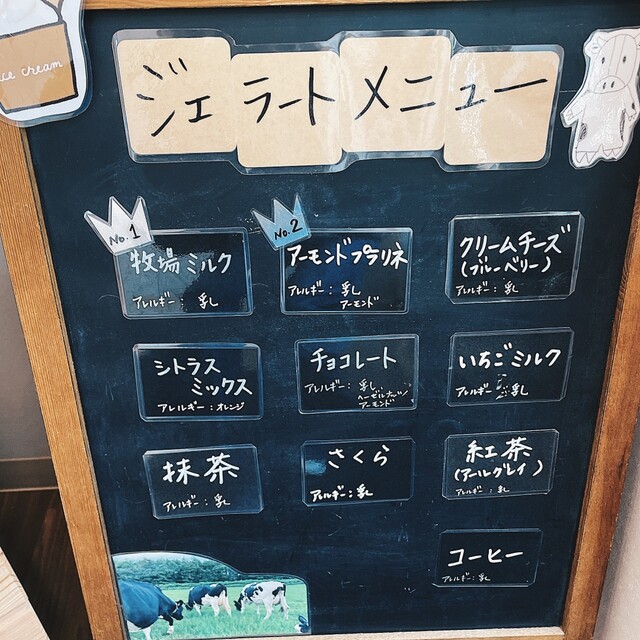 ice cream
ジェラートメニュー
No.1
牧場ミルク
アレルギー：乳
No.2
アーモンドプラリネ
アレルギー：乳
アーモンド
クリームチーズ
(ブルーベリー)
アレルギー：乳
シトラス
ミックス
アレルギー：オレンジ
チョコレート
アレルギー：乳
ヘーゼルナッツ
アーモンド
いちごミルク
アレルギー：乳
抹茶
アレルギー：乳
さくら
アレルギー：乳
紅茶
(アールグレイ)
アレルギー：乳
コーヒー
アレルギー：乳